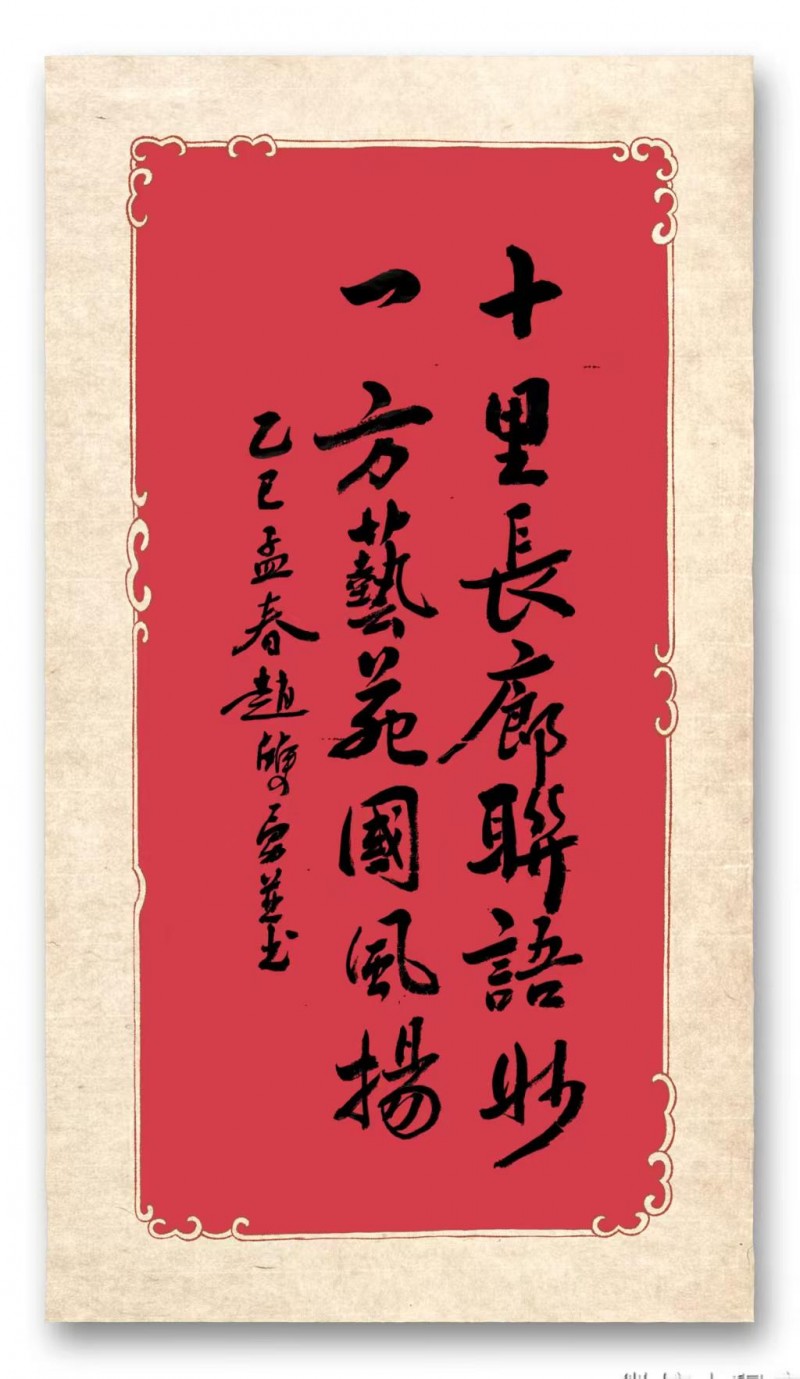 十里長廊聯語妙
一方藝苑國風揚
乙巳孟春趙雙并書